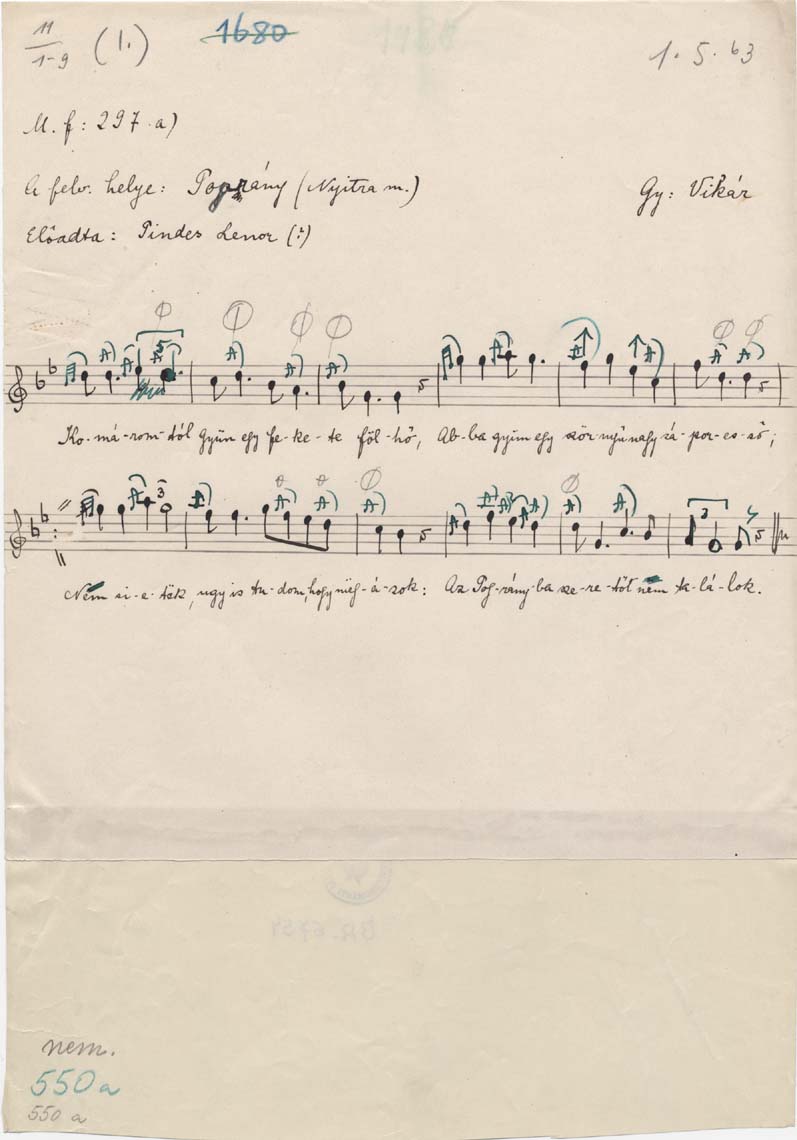 11
1-9 (1.) 1680
1. 5. 63
M. f: 297 a)
A felv. helye: (Nyitra m.) Gy: Vikár
Előadta: Pindes Lenor (?)
Ko-má-rom-tól gyün egy fe-ke-te föl-hő, Ab-ba gyün egy ször-nyü nagy zá-por-es-ső;
Nem si-e-tök, ugy is tu-dom, hogy meg-á-zok: Az Pog-rány-ba sze-re-tőt nem ta-lá-lok.
BR. 6754
nem.
550 a
550 a